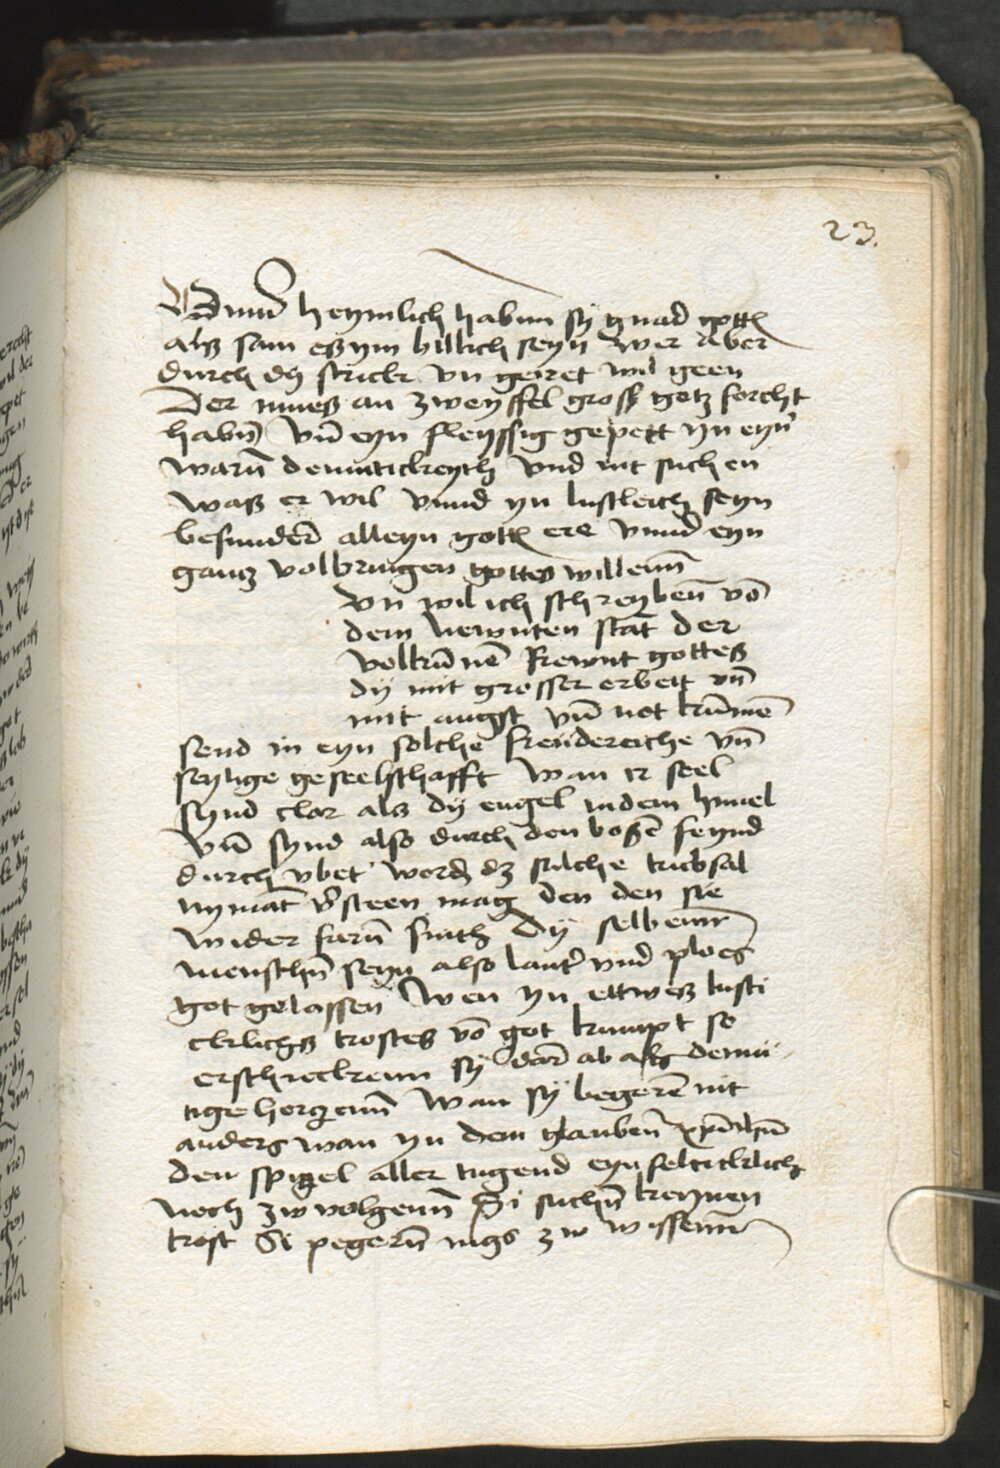 23.
Vnnd heymlich habnn sÿ gnad gottz
alß sam eß ym billich seyn wer Aber
durch dÿ strick vn geiret wil geen
Der mueß an zweyffel groß gotz forcht
habn̄ vn̄ eyn fleyssig gepett yn eyn̄
warn̄ demutickeyth vnd nit suchen
waß er wil vnnd yn lustleich seyn
besunder alleyn gottz ere vnnd eyn
gancz volbringen gottes willenn̄
vn wil ich schreyben̄ vō
dem newnten stat der
volkūnē frewnt gottes
dÿ mit grosser erbett vn̄
mit angst vn̄ not kūmē
send in eyn solche freudereiche vn̄
seylige geselschafft wan ir seel
synd clar alß dÿ engel in dem himel
vn̄ synd also durch den boßē feynd
durch vbet word dz sulche trubsal
nymāt v̄steen mag den den sie
wider farn̄ sinth Dÿ selbenn
menschn̄ seyn also lauter vnd ploes
got gelassen Wen yn ettweß lusti
cklichß trostes vō got kumpt so
erschreckenn sÿ dar ab alß demü
tige herczenn̄ Wan sÿ begerē nit
anders wan yn dem glauben̄
den spigel aller tugend eynfelticklich
noch zw volgenn̄ Si suchn̄ keynen
trost Si pegern̄ nigs zw wissenn